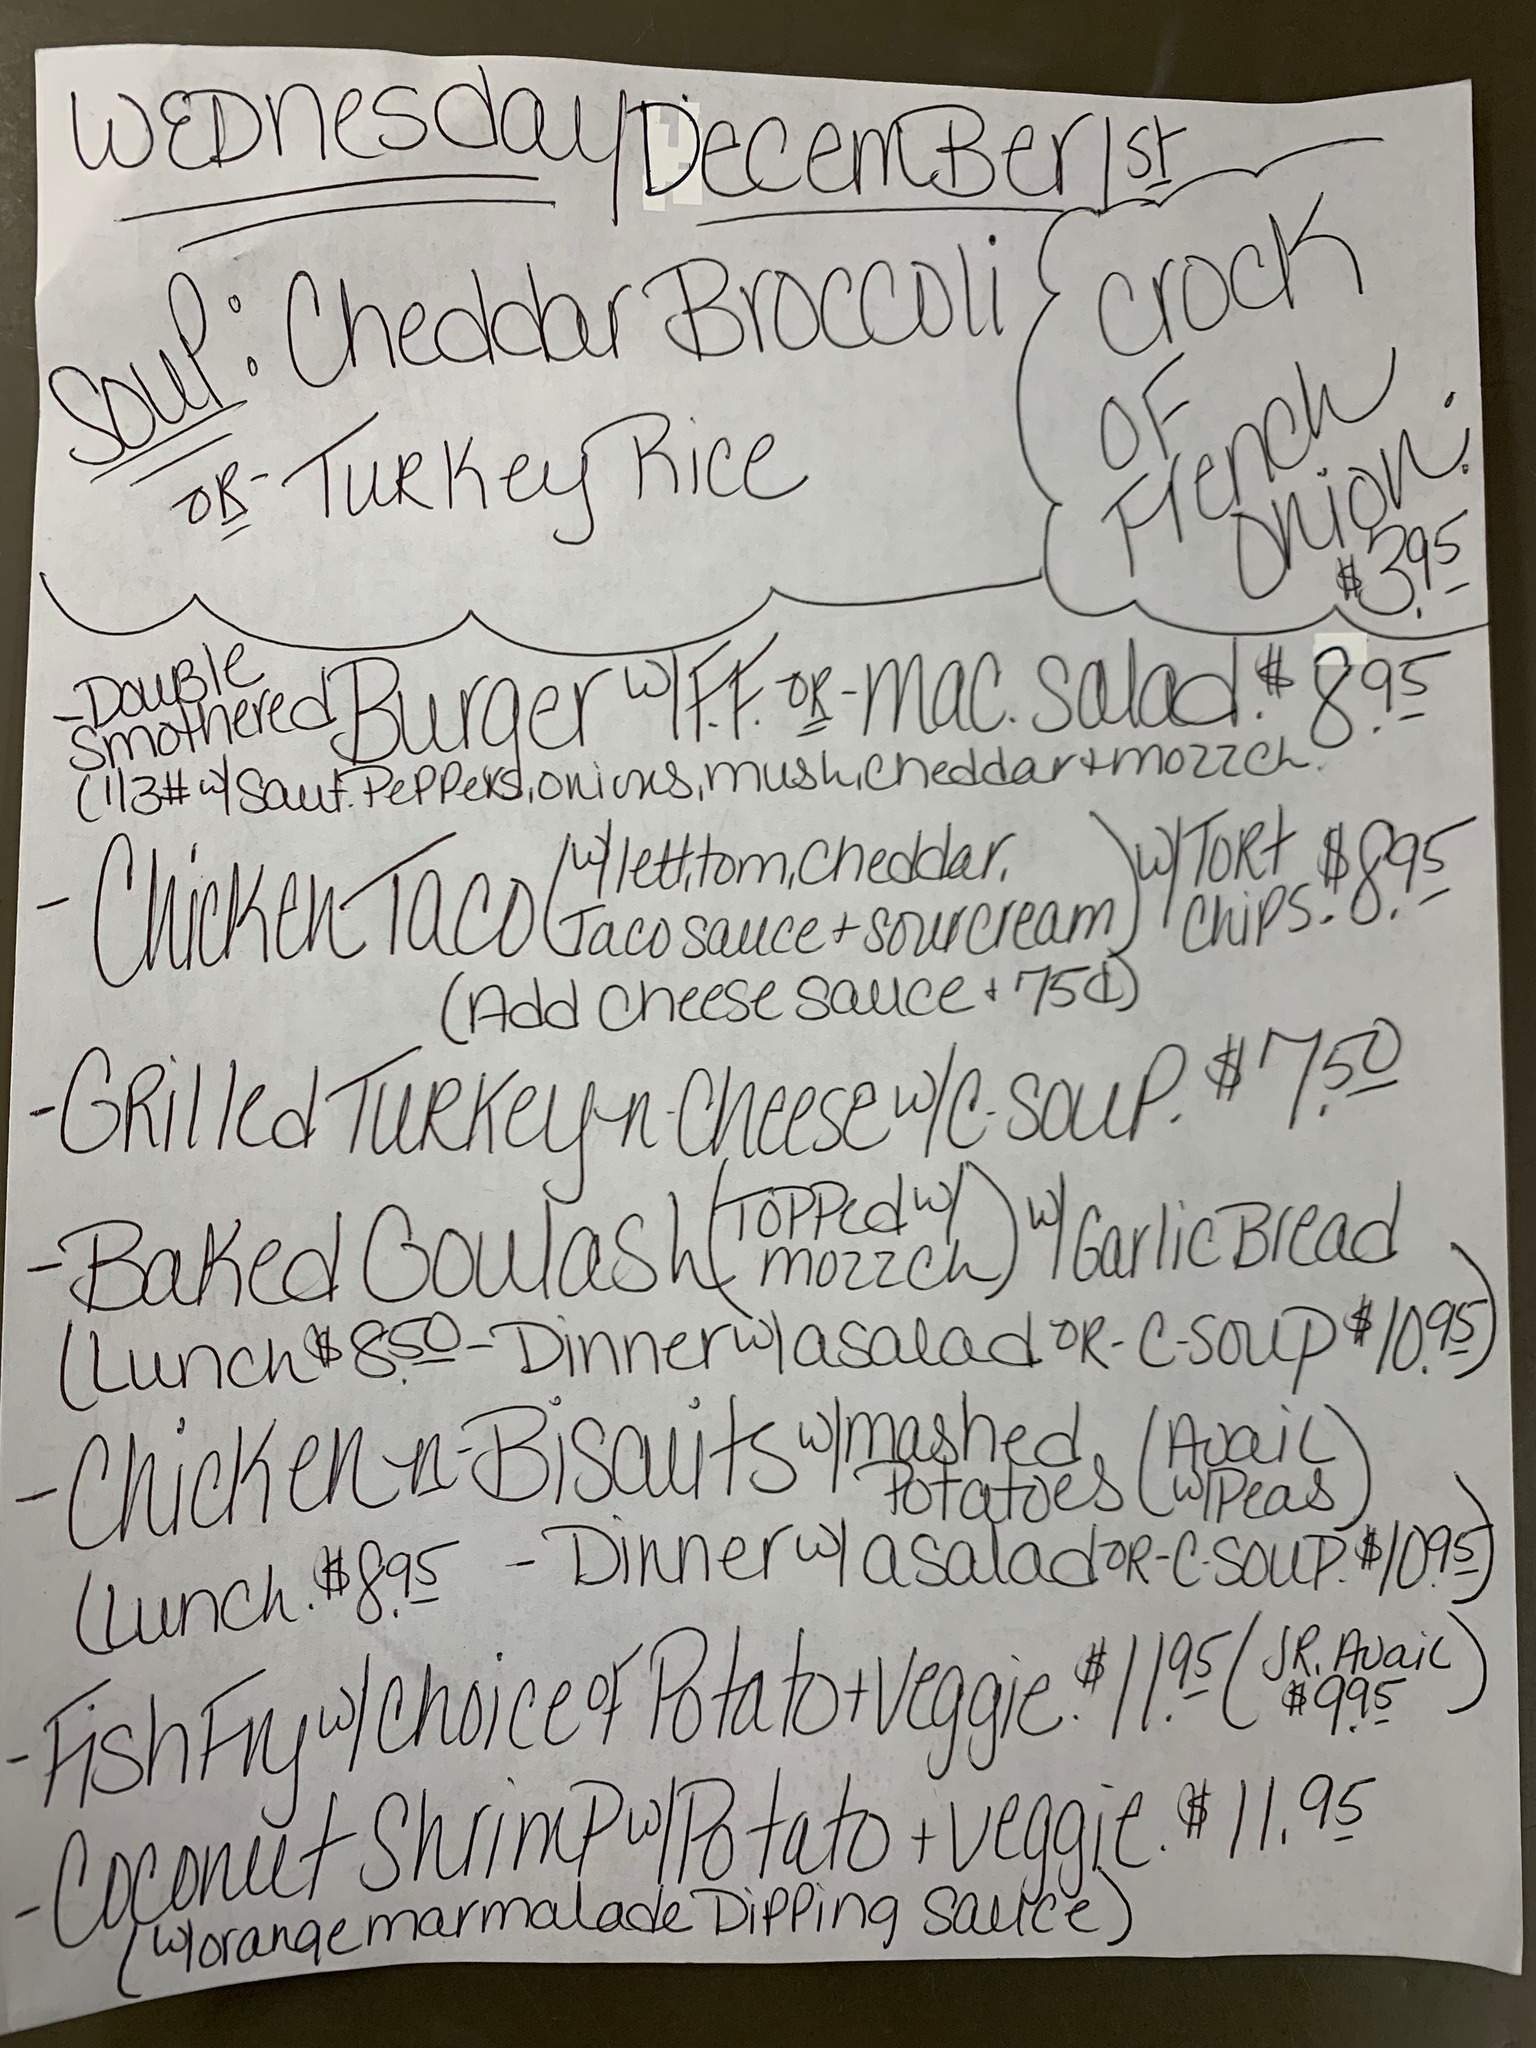 Wednesday December 1st
Soup: Cheddar Broccoli
OR - Turkey Rice
Crock
OF
French
Onion.
$3.95
- Double
Smothered Burger w/ F.F. OR - Mac. Salad. $8.95
(1/3# w/ Saut. Peppers, onions, mush, cheddar + mozz ch.
- Chicken Taco (w/ lett, tom, cheddar,
Taco sauce + sour cream) w/ Tort
chips. $8.95
(Add Cheese Sauce + 75¢)
- Grilled Turkey -n- Cheese w/ C-Soup. $7.50
- Baked Goulash (Topped w/
mozz ch) w/ Garlic Bread
(Lunch $8.50 - Dinner w/ a salad OR - C-Soup $10.95)
- Chicken -n- Biscuits w/ mashed
Potatoes (Avail
w/ Peas)
(Lunch. $8.95 - Dinner w/ a salad OR - C-Soup. $10.95)
- Fish Fry w/ choice of Potato + Veggie. $11.95 (JR. Avail
$9.95)
- Coconut Shrimp w/ Potato + Veggie. $11.95
(w/ orange marmalade Dipping Sauce)